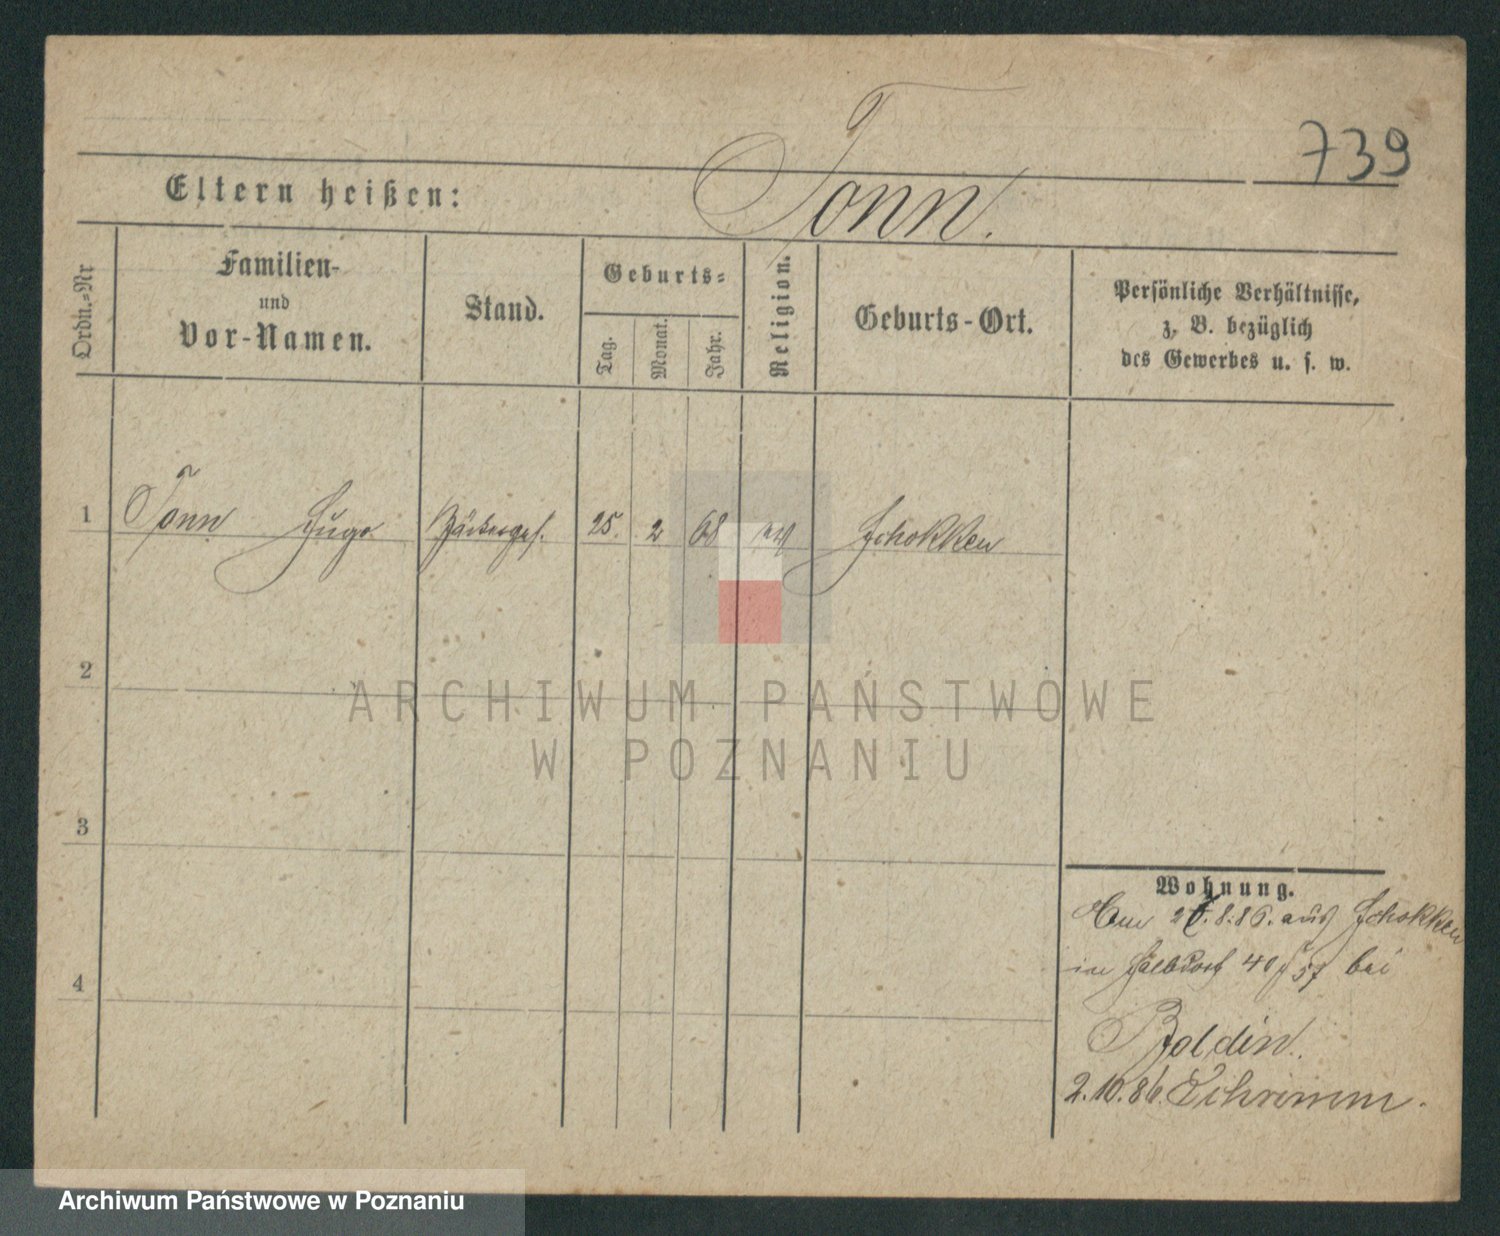 739
Eltern heißen: Tonn.
Ordn.-Nr
Familien-
und
Vor-Namen.
Stand.
Geburts-
Tag.
Monat.
Jahr.
Religion.
Geburts-Ort.
Persönliche Verhältnisse,
z. B. bezüglich
des Gewerbes u. s. w.
1 Tonn Hugo Bäckerges. 25. 2 68 ev Schokken
2
3
4
Wohnung.
8.86. aus Schokken
in 40 bei
Boldin.
2.10.86. Schrimm.
ARCHIWUM PAŃSTWOWE
W POZNANIU
Archiwum Państwowe w Poznaniu